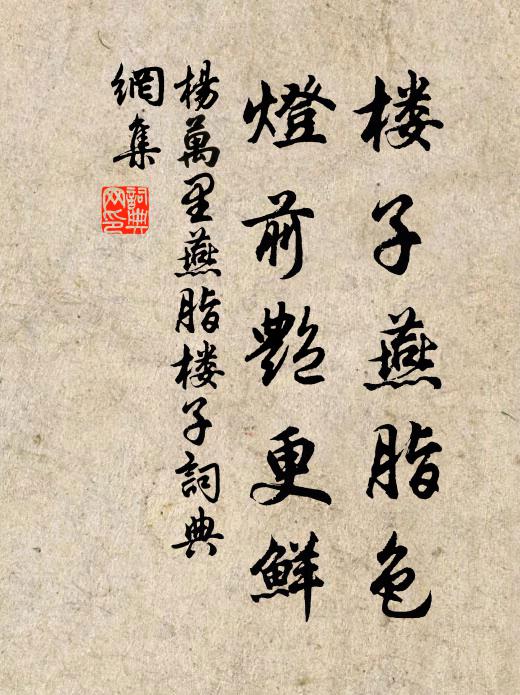 楼子燕脂色
燈前艶更鮮
楊萬里燕脂楼子詞典
網集
詞典网印